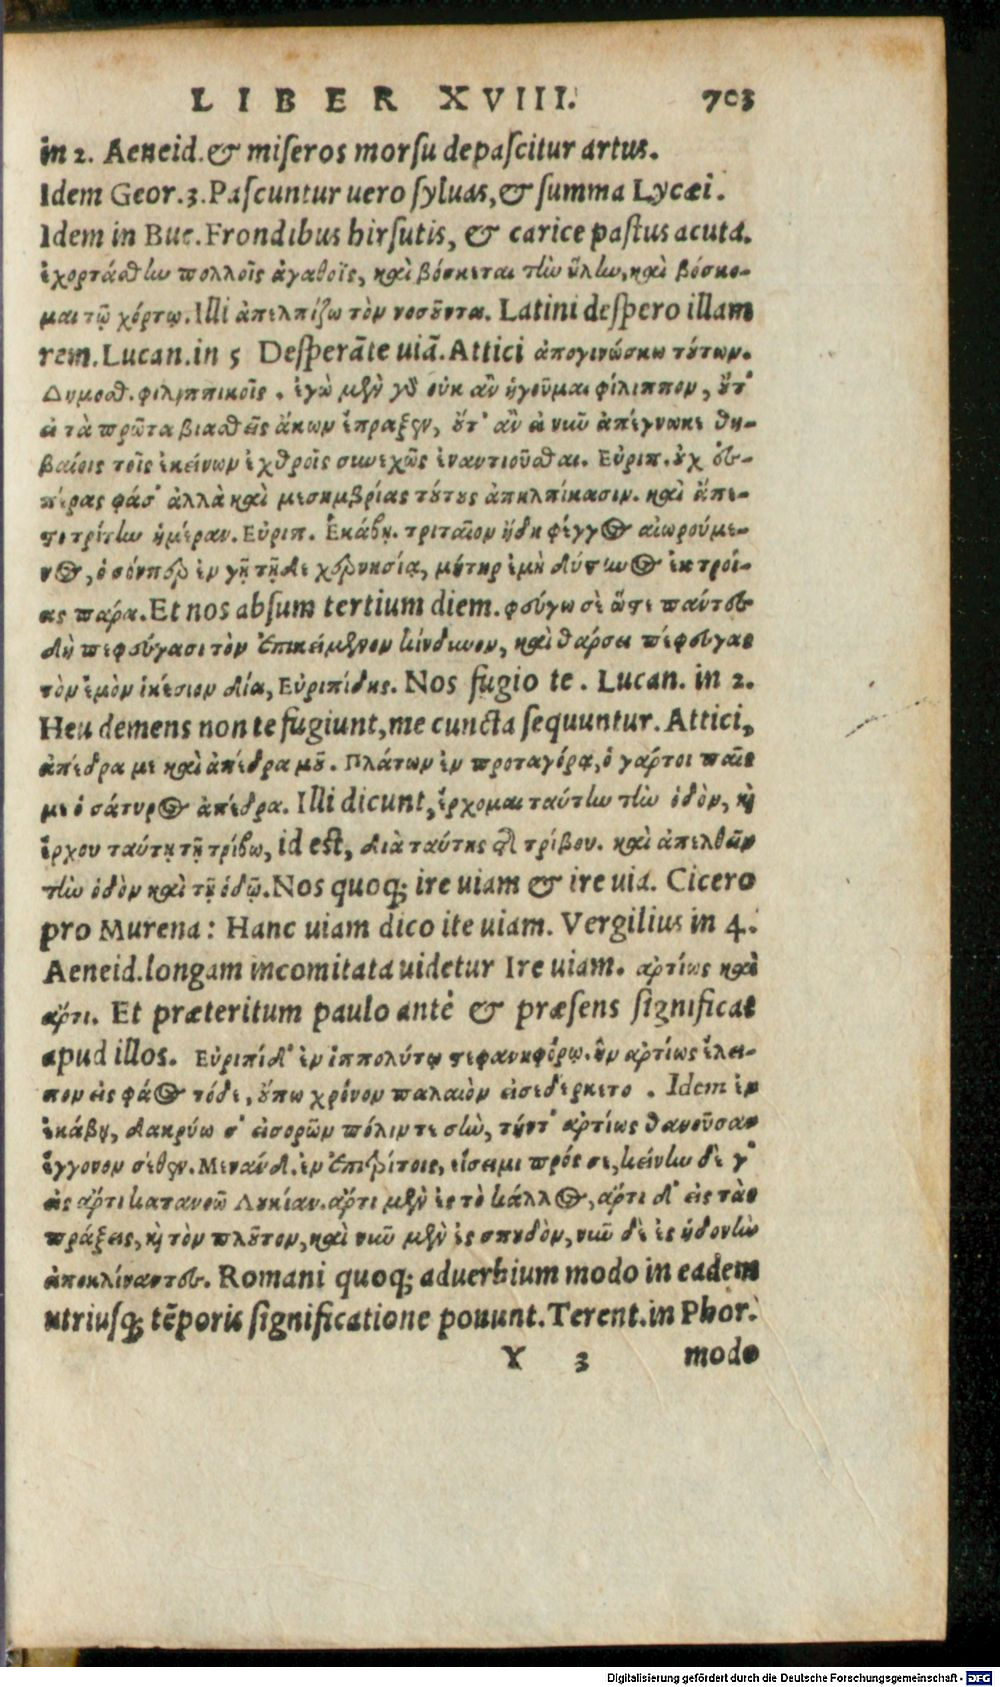 LIBER XVIII. 703
in 2. Aeneid. & miseros morsu depascitur artus.
Idem Geor.3. Pascuntur uero syluas, & summa Lycæi.
Idem in Buc. Frondibus hirsutis, & carice pastus acuta.
ἐχορτάσθην πολλοῖς ἀγαθοῖς, καὶ βόσκεται τὴν ὕλην, καὶ βόσκο-
μαι τῷ χόρτῳ. Illi ἀπελπίζω τὸν νοσοῦντα. Latini despero illam
rem. Lucan. in 5 Desperāte uiā. Attici ἀπογινώσκω τούτων.
Δημοσθ. φιλιππικοῖς. ἐγὼ μὲν γὸ οὐκ ἂν ἡγοῦμαι φίλιππον, οὔτ'
εἰ τὰ πρῶτα βιασθεῖς ἄκων ἔπραξεν, οὔτ' ἂν εἰ νῦν ἀπέγνωκε θη-
βαίοις τοῖς ἐκείνων ἐχθροῖς συνεχῶς ἐναντιοῦσθαι. Εὐριπ. οὐχ ἑσ-
πέρας φάσ' ἀλλὰ καὶ μεσημβρίας τούτους ἀπηλπίκασιν. καὶ ἄπε-
στι τρίτην ἡμέραν. Εὐριπ. Ἑκάβῃ. τριταῖον ἤδη φέγγος αἰωρούμε-
νος, ὁσόνπερ ἐν γῇ τῇδε χερνησίᾳ, μήτηρ ἐμὴ δύστηνος ἐκ τροί-
ας πάρα. Et nos absum tertium diem. φεύγω σὲ ὥστε παύτες
δὴ πεφεύγασι τὸν ἐπικείμενον κίνδυνον, καὶ θάρσει πέφευγας
τὸν ἐμὸν ἱκέσιον δία, Εὐριπίδης. Nos fugio te. Lucan. in 2.
Heu demens non te fugiunt, me cuncta sequuntur. Attici,
ἀπέδρα με καὶ ἀπέδρα μοῦ. Πλάτων ἐν προταγόρᾳ, ὁ γάρτοι παῖς
με ὁ σάτυρος ἀπέδρα. Illi dicunt, ἔρχομαι ταύτην τὴν ὁδὸν, καὶ
ἔρχου ταύτῃ τῇ τρίβῳ, id est, διὰ ταύτης τῆς τρίβου. καὶ ἀπελθῶν
τὴν ὁδὸν καὶ τῇ ὁδῷ. Nos quoq; ire uiam & ire uia. Cicero
pro Murena: Hanc uiam dico ite uiam. Vergilius in 4.
Aeneid. longam incomitata uidetur Ire uiam. ἀρτίως καὶ
ἄρτι. Et præteritum paulo antè & præsens significat
apud illos. Εὐριπίδ' ἐν ἱππολύτῳ στεφανηφόρῳ. ἣν ἀρτίως ἔλει-
πον εἰς φάος τόδε, οὔπω χρόνον παλαιὸν εἰσεδέρκετο. Idem ἐν
ἑκάβῃ, δακρύω σ' εἰσορῶν πόλιν τε σὴν, τήντ' ἀρτίως θανοῦσαν
ἔγγονον σέθεν. Μενάνδ. ἐν Ἐπιτρίτοις, εἴσειμι πρός σε, κείνην δὲ γ'
ὡς ἄρτι κατανοῶ Λυκίαν. ἄρτι μὲν ἐς τὸ κάλλος, ἄρτι δ' εἰς τὰς
πράξεις, καὶ τὸν πλοῦτον, καὶ νῦν μὲν ἐς σπουδὸν, νῦν δὲ ἐς ἡδονὴν
ἀποκλίναντες. Romani quoq; aduerbium modo in eadem
utriusq; tēporis significatione ponunt. Terent. in Phor.
Y 3 modo
Digitalisierung gefördert durch die Deutsche Forschungsgemeinschaft - DFG